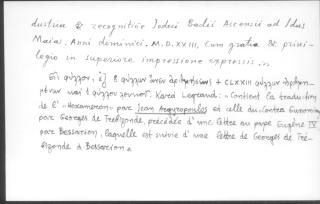 dustria & recognitiōe Jodoci Badii Ascensii ad Idus
Maias. Anni dominici. M.D.XXIII, Cum gratia & privi-
legio in superiore impressione expressis. »
φύλλον, 8 φύλλων + CLXXIII φύλλων ἀριθμη-
μένων καί 1 φύλλον λευκόν. Κατά Legrand: « Contient la traduction
de l' "Hexameron" par Jean Argyropoulos et celle du Contra Eunomium
par Georges de Trébizonde, précédée d'une lettre au pape Eugène IV
par Bessarion, laquelle est suivie d'une lettre de Georges de Tré-
bizonde à Bessarion »